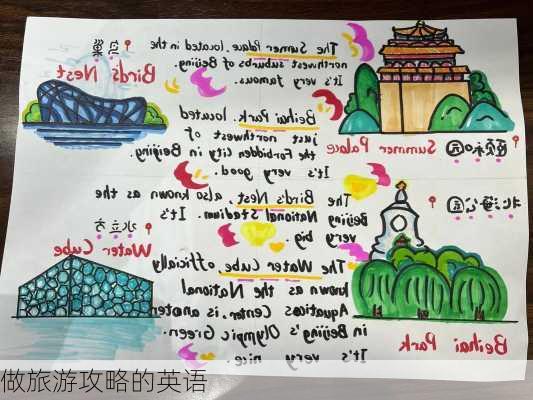 鸟巢
Bird's Nest
The Summer Palace. located in the
northwest suburbs of Beijing.
It's very famous.
颐和园
Summer Palace
Beihai Park. located
just northwest of
the Forbidden City in Beijing.
It's very good.
The Bird's Nest. also known as the
Beijing National Stadium. It's
very big.
北海公园
Beihai Park
水立方
Water Cube
The Water Cube officially
known as the National
Aquatics Center, is another
in Beijing's Olympic Green.
It's very nice.
做旅游攻略的英语